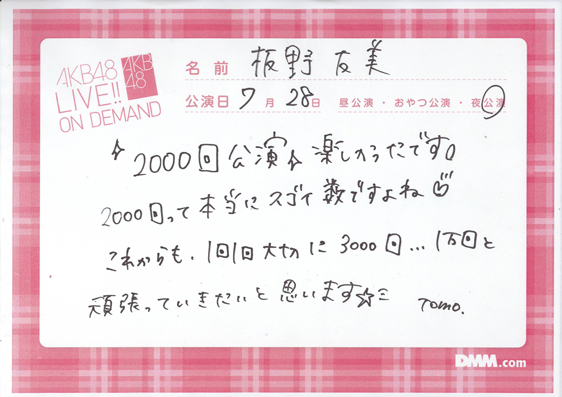 AKB48
LIVE!!
ON DEMAND
AKB
48
名前 板野友美
公演日 7月28日 昼公演・おやつ公演・夜公演
2000回公演☆楽しかったです♪
2000回って本当にスゴイ数ですよね♡
これからも、1回1回大切に3000回…1万回と
頑張っていきたいと思います☆ミ Tomo.
DMM.com